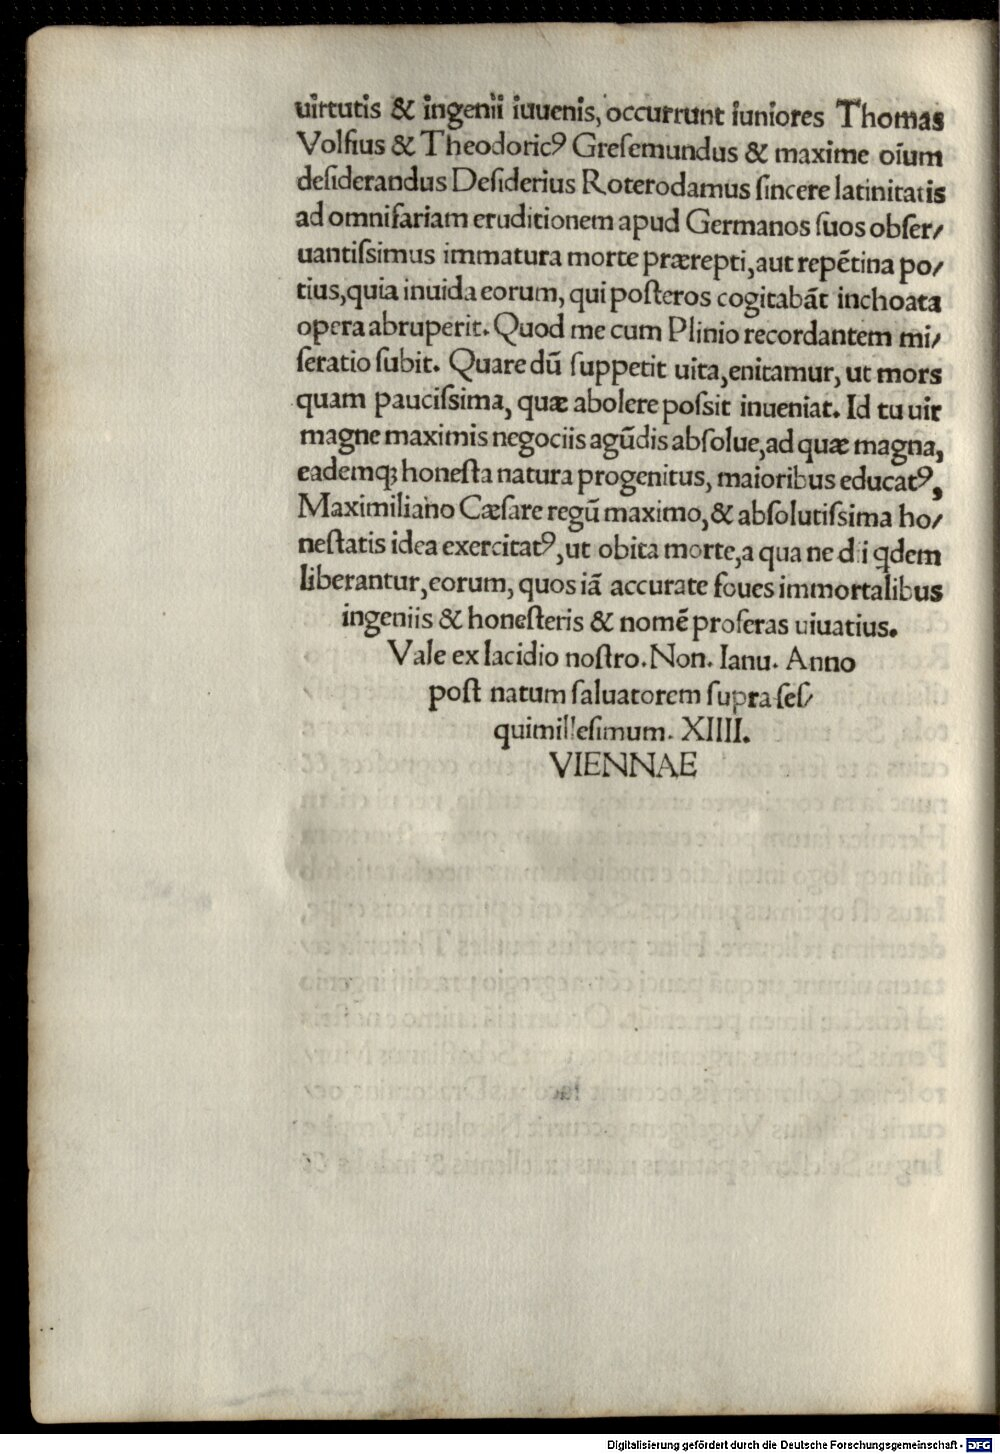 uirtutis & ingenii iuuenis, occurrunt iuniores Thomas
Volfius & Theodoricꝰ Gresemundus & maxime oı̄um
desiderandus Desiderius Roterodamus sincere latinitatis
ad omnifariam eruditionem apud Germanos suos obser/
uantissimus immatura morte præreptı, aut repētina po/
tius, quia inuida eorum, qui posteros cogitabāt inchoata
opera abruperit. Quod me cum Plinio recordantem mi/
seratio subit. Quare dū suppetit uita, enitamur, ut mors
quam paucissima, quæ abolere possit inueniat. Id tu uir
magne maximis negociis agūdis absolue, ad quæ magna,
eademqꝫ honesta natura progenitus, maioribus educatꝰ,
Maximiliano Cæsare regū maximo, & absolutissima ho/
nestatis idea exercitatꝰ, ut obita morte, a qua ne dii qdem
liberantur, eorum, quos iā accurate foues immortalibus
ingeniis & honesteris & nomē proferas uiuatius.
Vale ex lacidio nostro. Non. Ianu. Anno
post natum saluatorem supra ses/
quimillesimum. XIIII.
VIENNAE
Digitalisierung gefördert durch die Deutsche Forschungsgemeinschaft - DFG